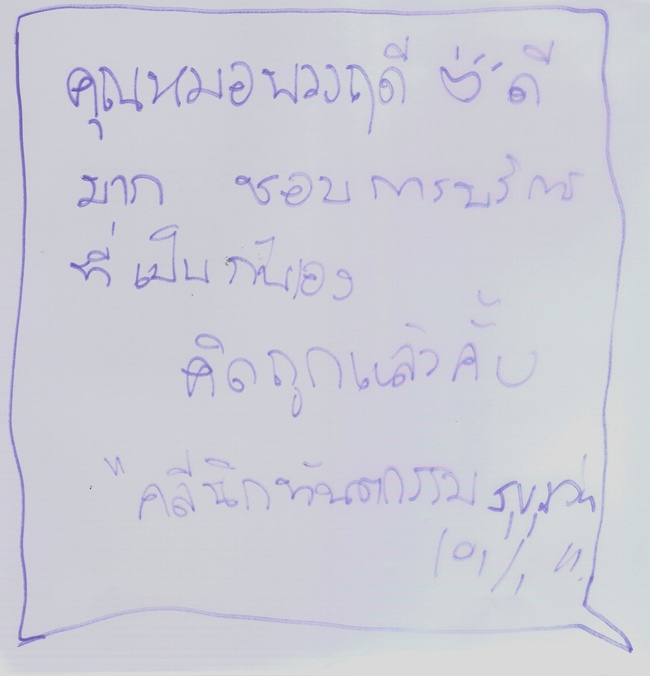 คุณหมอพวงฤดี ดี
มาก ชอบการบริการ
ที่เป็นกันเอง
คิดถูกแล้วคั้บ
"คลีนิกทันตกรรม